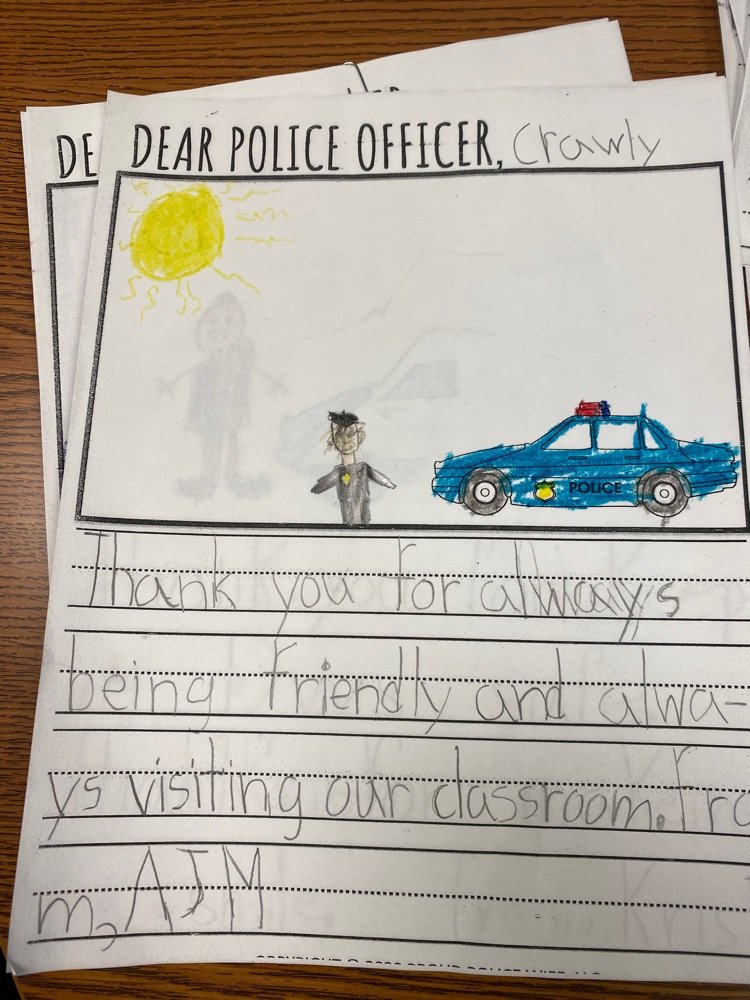 DE
DEAR POLICE OFFICER, Crawly
POLICE
Thank you for always
being friendly and alwa-
ys visiting our classroom. Fro
m, AJM